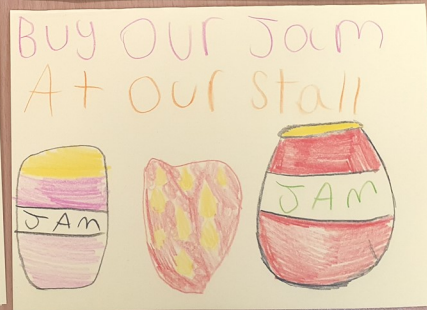 Buy Our Jam
At Our Stall
JAM
JAM